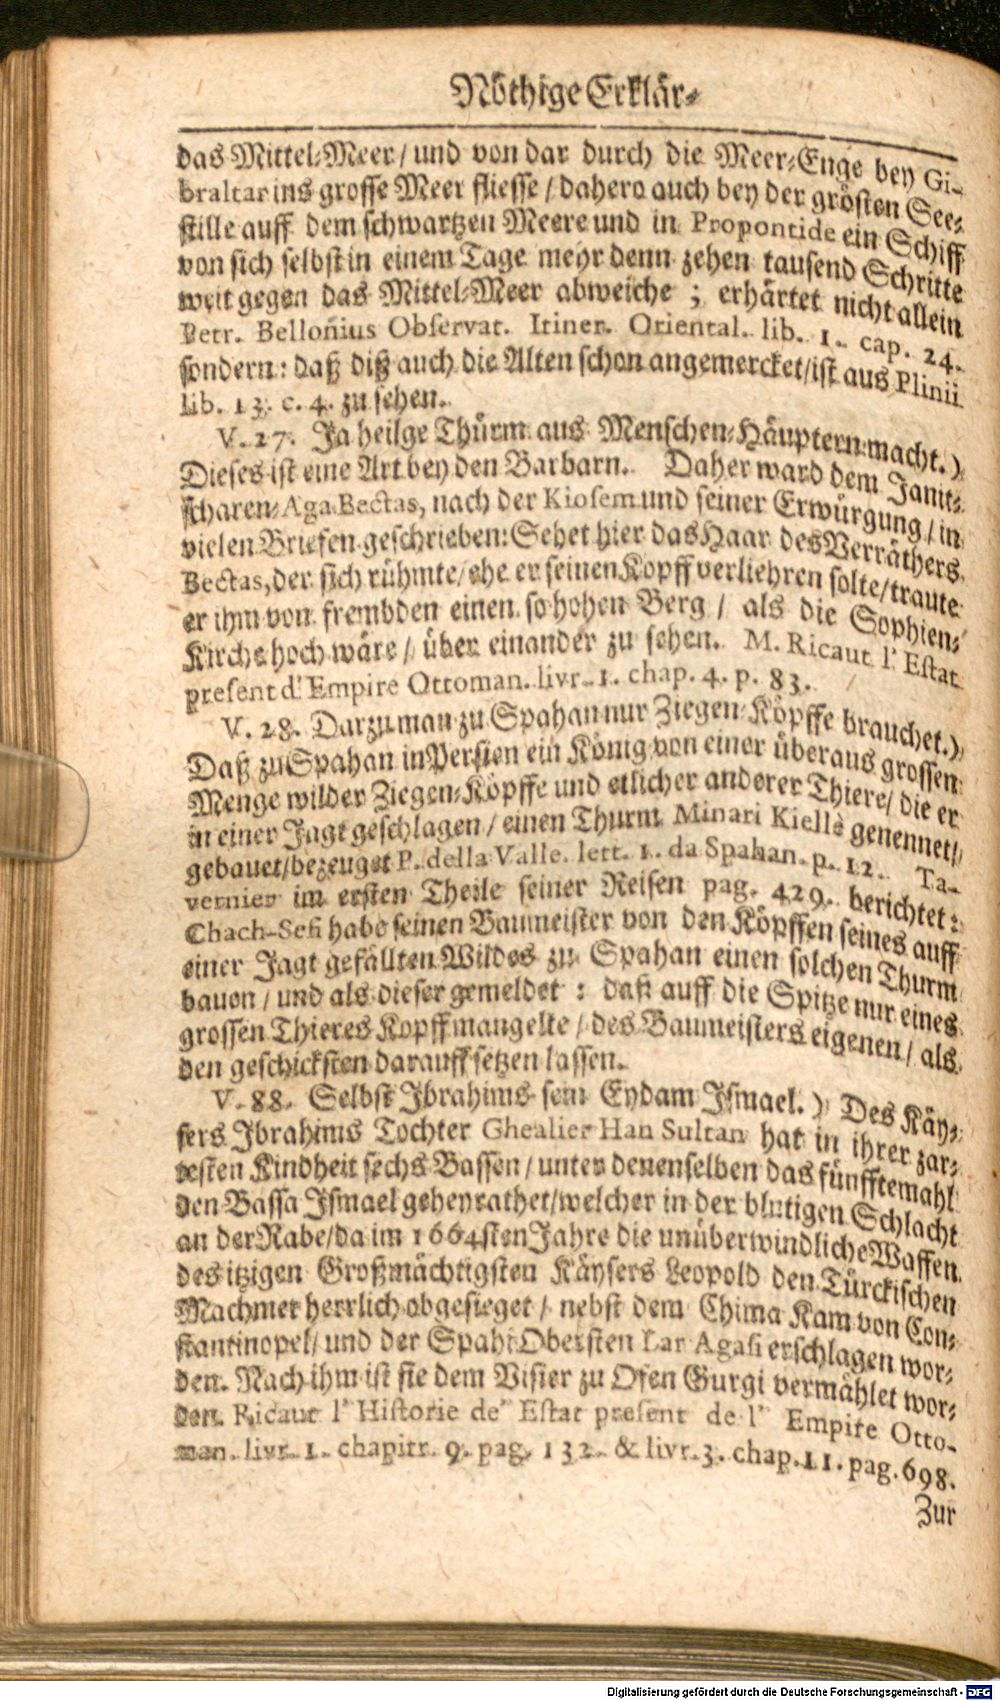 Nöthige Erklär⸗
das Mittel⸗Meer / und von dar durch die Meer⸗Enge bey Gi-
braltar ins grosse Meer fliesse / dahero auch bey der grösten See⸗
stille auff dem schwartzen Meere und in Propontide ein Schiff
von sich selbst in einem Tage mehr denn zehen tausend Schritte
weit gegen das Mittel⸗Meer abweiche ; erhärtet nicht allein
Petr. Bellonius Observat. Itiner. Oriental. lib. 1. cap. 24.
sondern: daß diß auch die Alten schon angemercket / ist aus Plinii
lib. 13. c. 4. zu sehen.
V. 27. Ja heilge Thürm aus Menschen⸗Häuptern macht. )
Dieses ist eine Art bey den Barbarn. Daher ward dem Janit⸗
scharen⸗Aga Bectas, nach der Kiosem und seiner Erwürgung / in
vielen Briefen geschrieben: Sehet hier das Haar des Verräthers
Bectas, der sich rühmte / ehe er seinen Kopff verliehren solte / traute
er ihm von frembden einen so hohen Berg / als die Sophien⸗
Kirche hoch wäre / über einander zu sehen. M. Ricaut l' Estat
present d' Empire Ottoman. livr. 1. chap. 4. p. 83.
V. 28. Darzu man zu Spahan nur Ziegen⸗Köpffe brauchet. )
Daß zu Spahan in Persien ein König von einer überaus grossen
Menge wilder Ziegen⸗Köpffe und etlicher anderer Thiere / die er
in einer Jagt geschlagen / einen Thurm Minari Kiellè genennet /
gebauet / bezeuget P. della Valle. lett. 1. da Spahan. p. 12. Ta-
vernier im ersten Theile seiner Reisen pag. 429. berichtet:
Chach-Sefi habe seinen Baumeister von den Köpffen seines auff
einer Jagt gefällten Wildes zu Spahan einen solchen Thurm
bauen / und als dieser gemeldet : daß auff die Spitze nur eines
grossen Thieres Kopff mangelte / des Baumeisters eigenen / als
den geschicksten darauff setzen lassen.
V. 88. Selbst Ibrahims sein Eydam Ismael. ) Des Käy⸗
sers Ibrahims Tochter Ghealier Han Sultan hat in ihrer zar⸗
testen Kindheit sechs Bassen / unter denenselben das fünfftemahl
den Bassa Ismael geheyrathet / welcher in der blutigen Schlacht
an der Rabe / da im 1664sten Jahre die unüberwindliche Waffen
des itzigen Großmächtigsten Käysers Leopold den Türckischen
Machmet herrlich obgesieget / nebst dem Chima Kam von Con⸗
stantinopel / und der Spahi Obersten Lar Agasi erschlagen wor⸗
den. Nach ihm ist sie dem Visier zu Ofen Gurgi vermählet wor⸗
den. Ricaut l' Historie de' Estat present de l' Empire Otto-
man. livr. 1. chapitr. 9. pag. 132. & livr. 3. chap. 11. pag. 698.
Zur
Digitalisierung gefördert durch die Deutsche Forschungsgemeinschaft - DFG